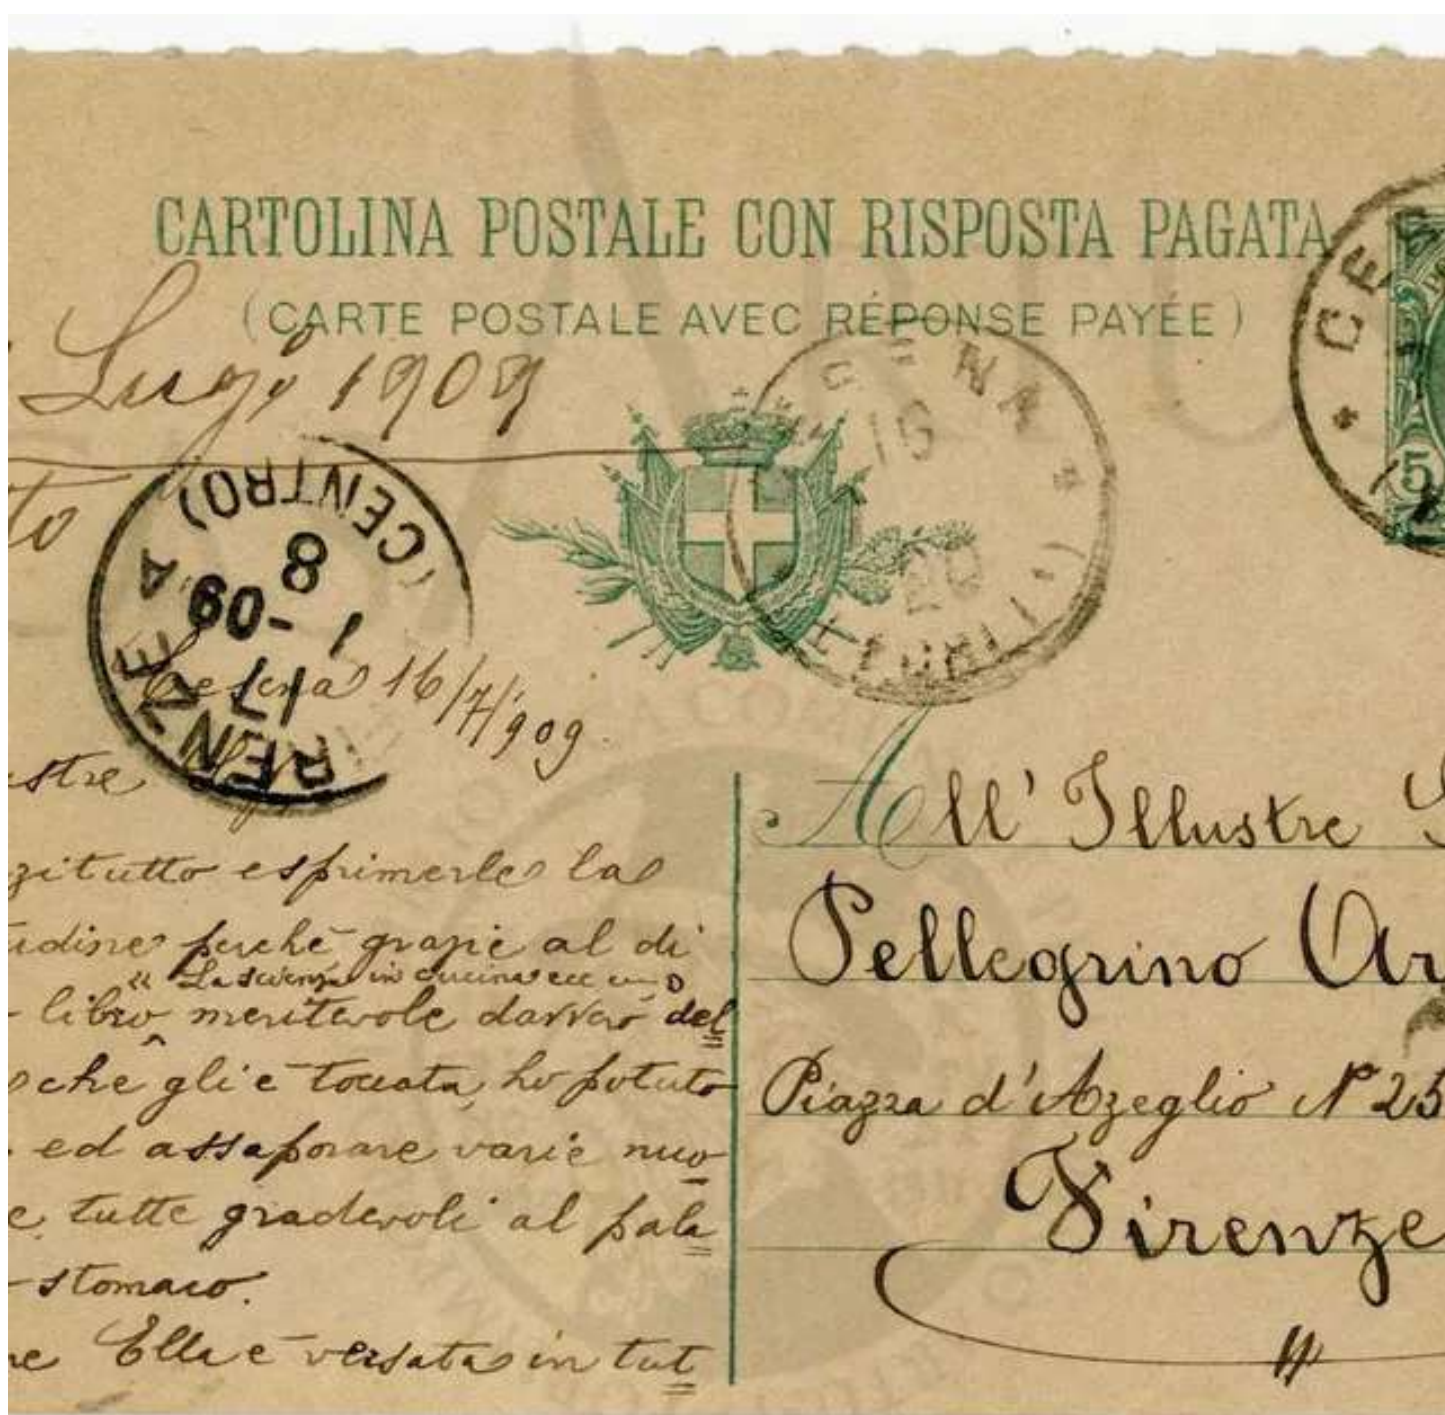 CARTOLINA POSTALE CON RISPOSTA PAGATA
(CARTE POSTALE AVEC RÉPONSE PAYÉE)
Lugo 1909
to
(CENTRO)
8
1-09
17
FIRENZE A
CESENA
16
20
(FORLI)
5
Cesena 16/7/909.
estre
zitutto esprimerle la
udine perchè grazie al di
"La scienza in cucina ecc
libro meritevole davvero del
che gli è toccata, ho potuto
ed assaporare varie nuo
e, tutte gradevoli al pala
stomaco.
ne Ella è versata in tut
All'Illustre
Pellegrino Ar
Piazza d'Azeglio N° 25
Firenze